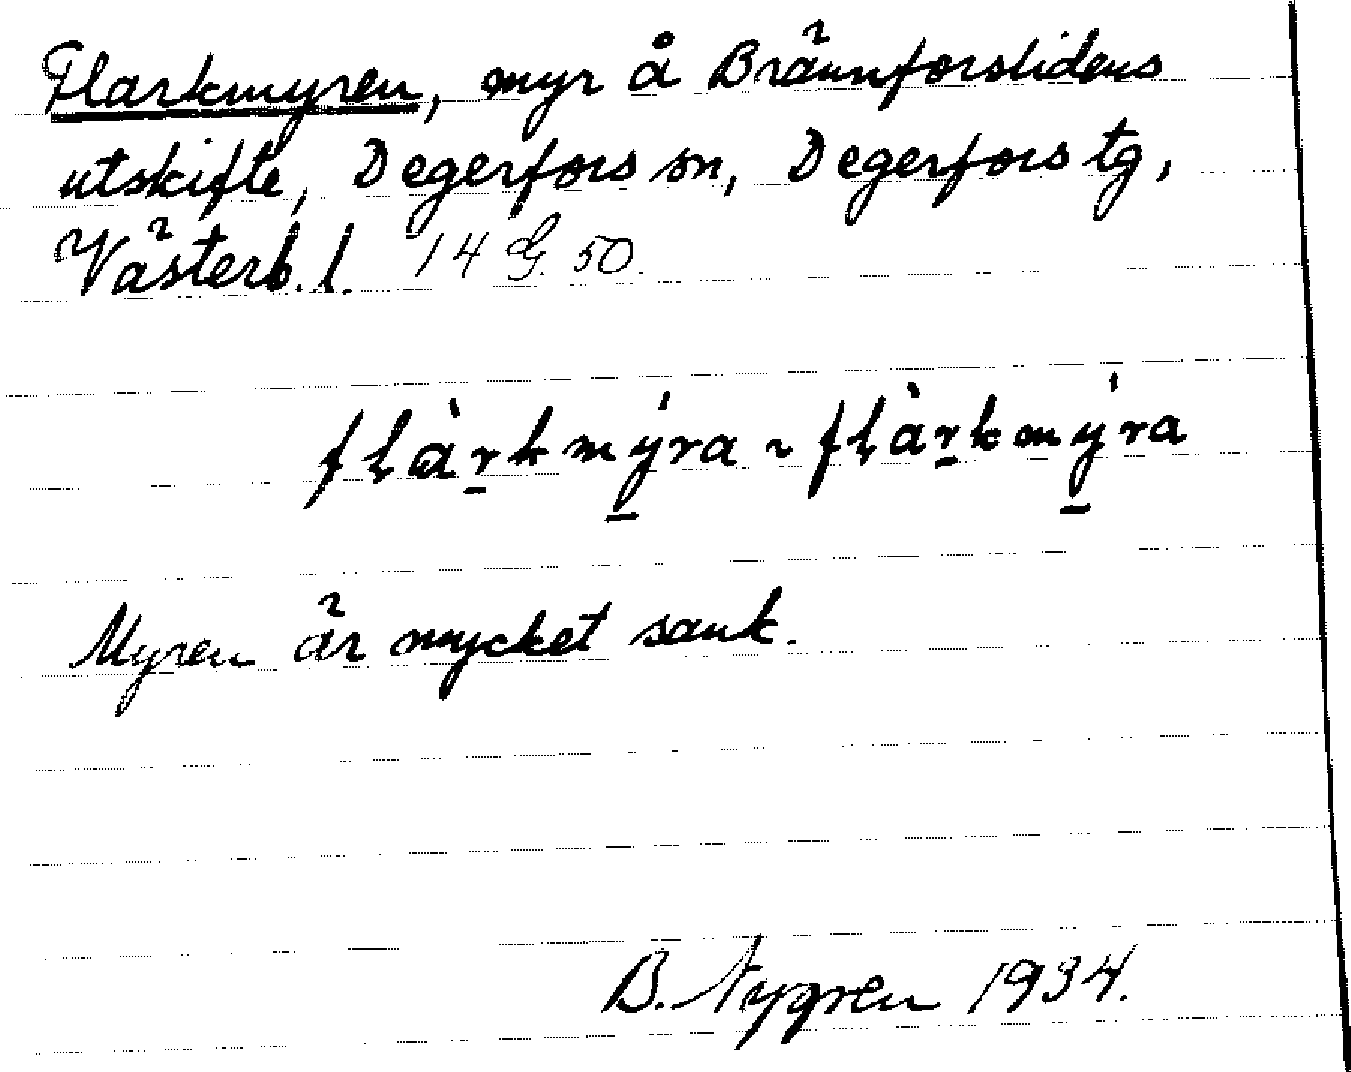 Flarkmyren, myr å Brännforslidens
utskifte, Degerfors sn, Degerfors tg,
Västerb. l. 14 G. 50.
flàrkmýra ~ flàrkmýra
Myren är mycket sank.
B. Nygren 1934.